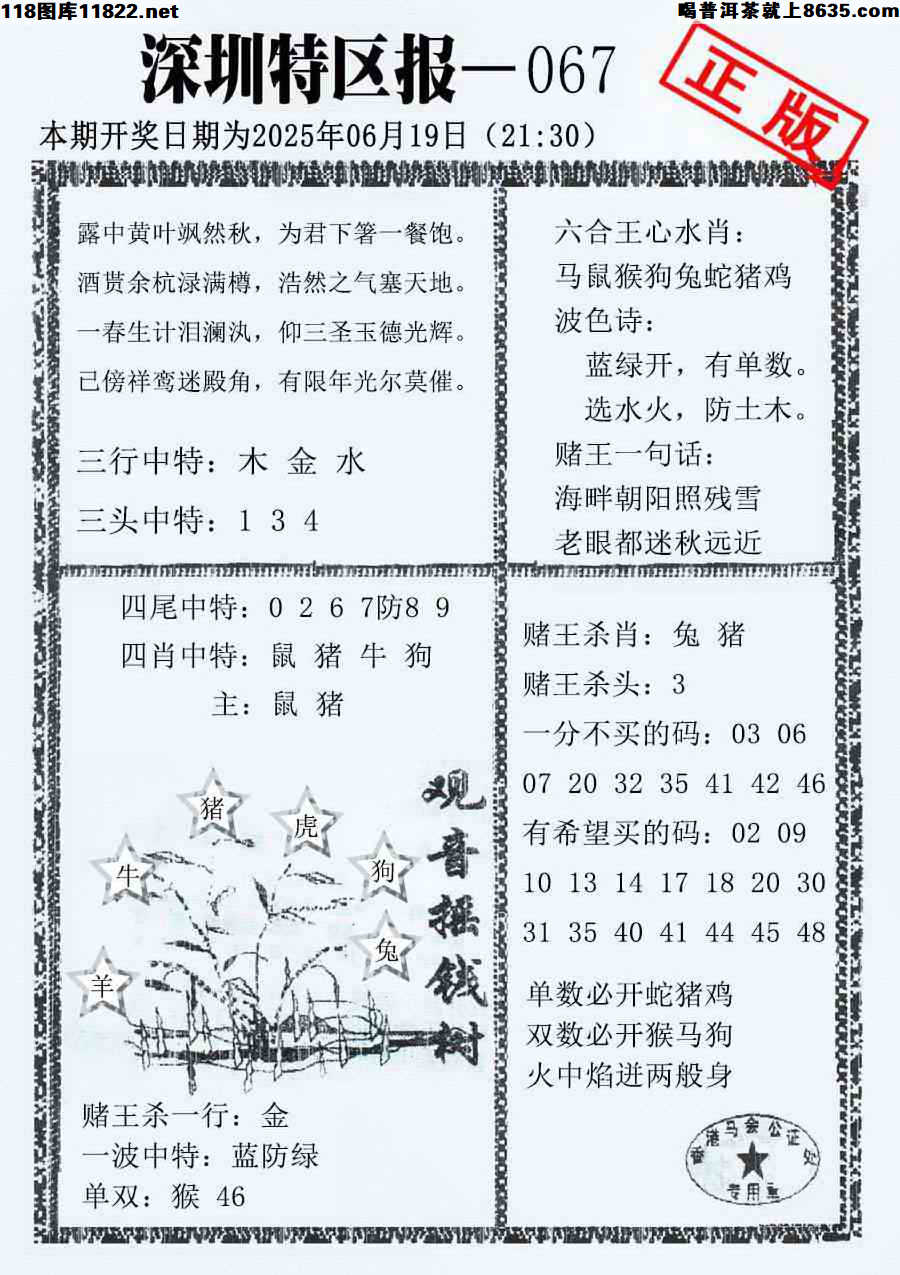 118图库11822.net
喝普洱茶就上8635.com
深圳特区报—067
正版
本期开奖日期为2025年06月19日（21:30）
露中黄叶飒然秋，为君下箸一餐饱。
酒贳余杭渌满樽，浩然之气塞天地。
一春生计泪澜汍，仰三圣玉德光辉。
已傍祥鸾迷殿角，有限年光尔莫催。
三行中特：木 金 水
三头中特：1 3 4
六合王心水肖：
马鼠猴狗兔蛇猪鸡
波色诗：
蓝绿开，有单数。
选水火，防土木。
赌王一句话：
海畔朝阳照残雪
老眼都迷秋远近
四尾中特：0 2 6 7防8 9
四肖中特：鼠 猪 牛 狗
主：鼠 猪
观音摇钱树
猪
虎
牛
狗
兔
羊
赌王杀一行：金
一波中特：蓝防绿
单双：猴 46
赌王杀肖：兔 猪
赌王杀头：3
一分不买的码：03 06
07 20 32 35 41 42 46
有希望买的码：02 09
10 13 14 17 18 20 30
31 35 40 41 44 45 48
单数必开蛇猪鸡
双数必开猴马狗
火中焰迸两般身
香港马会公证处
专用章